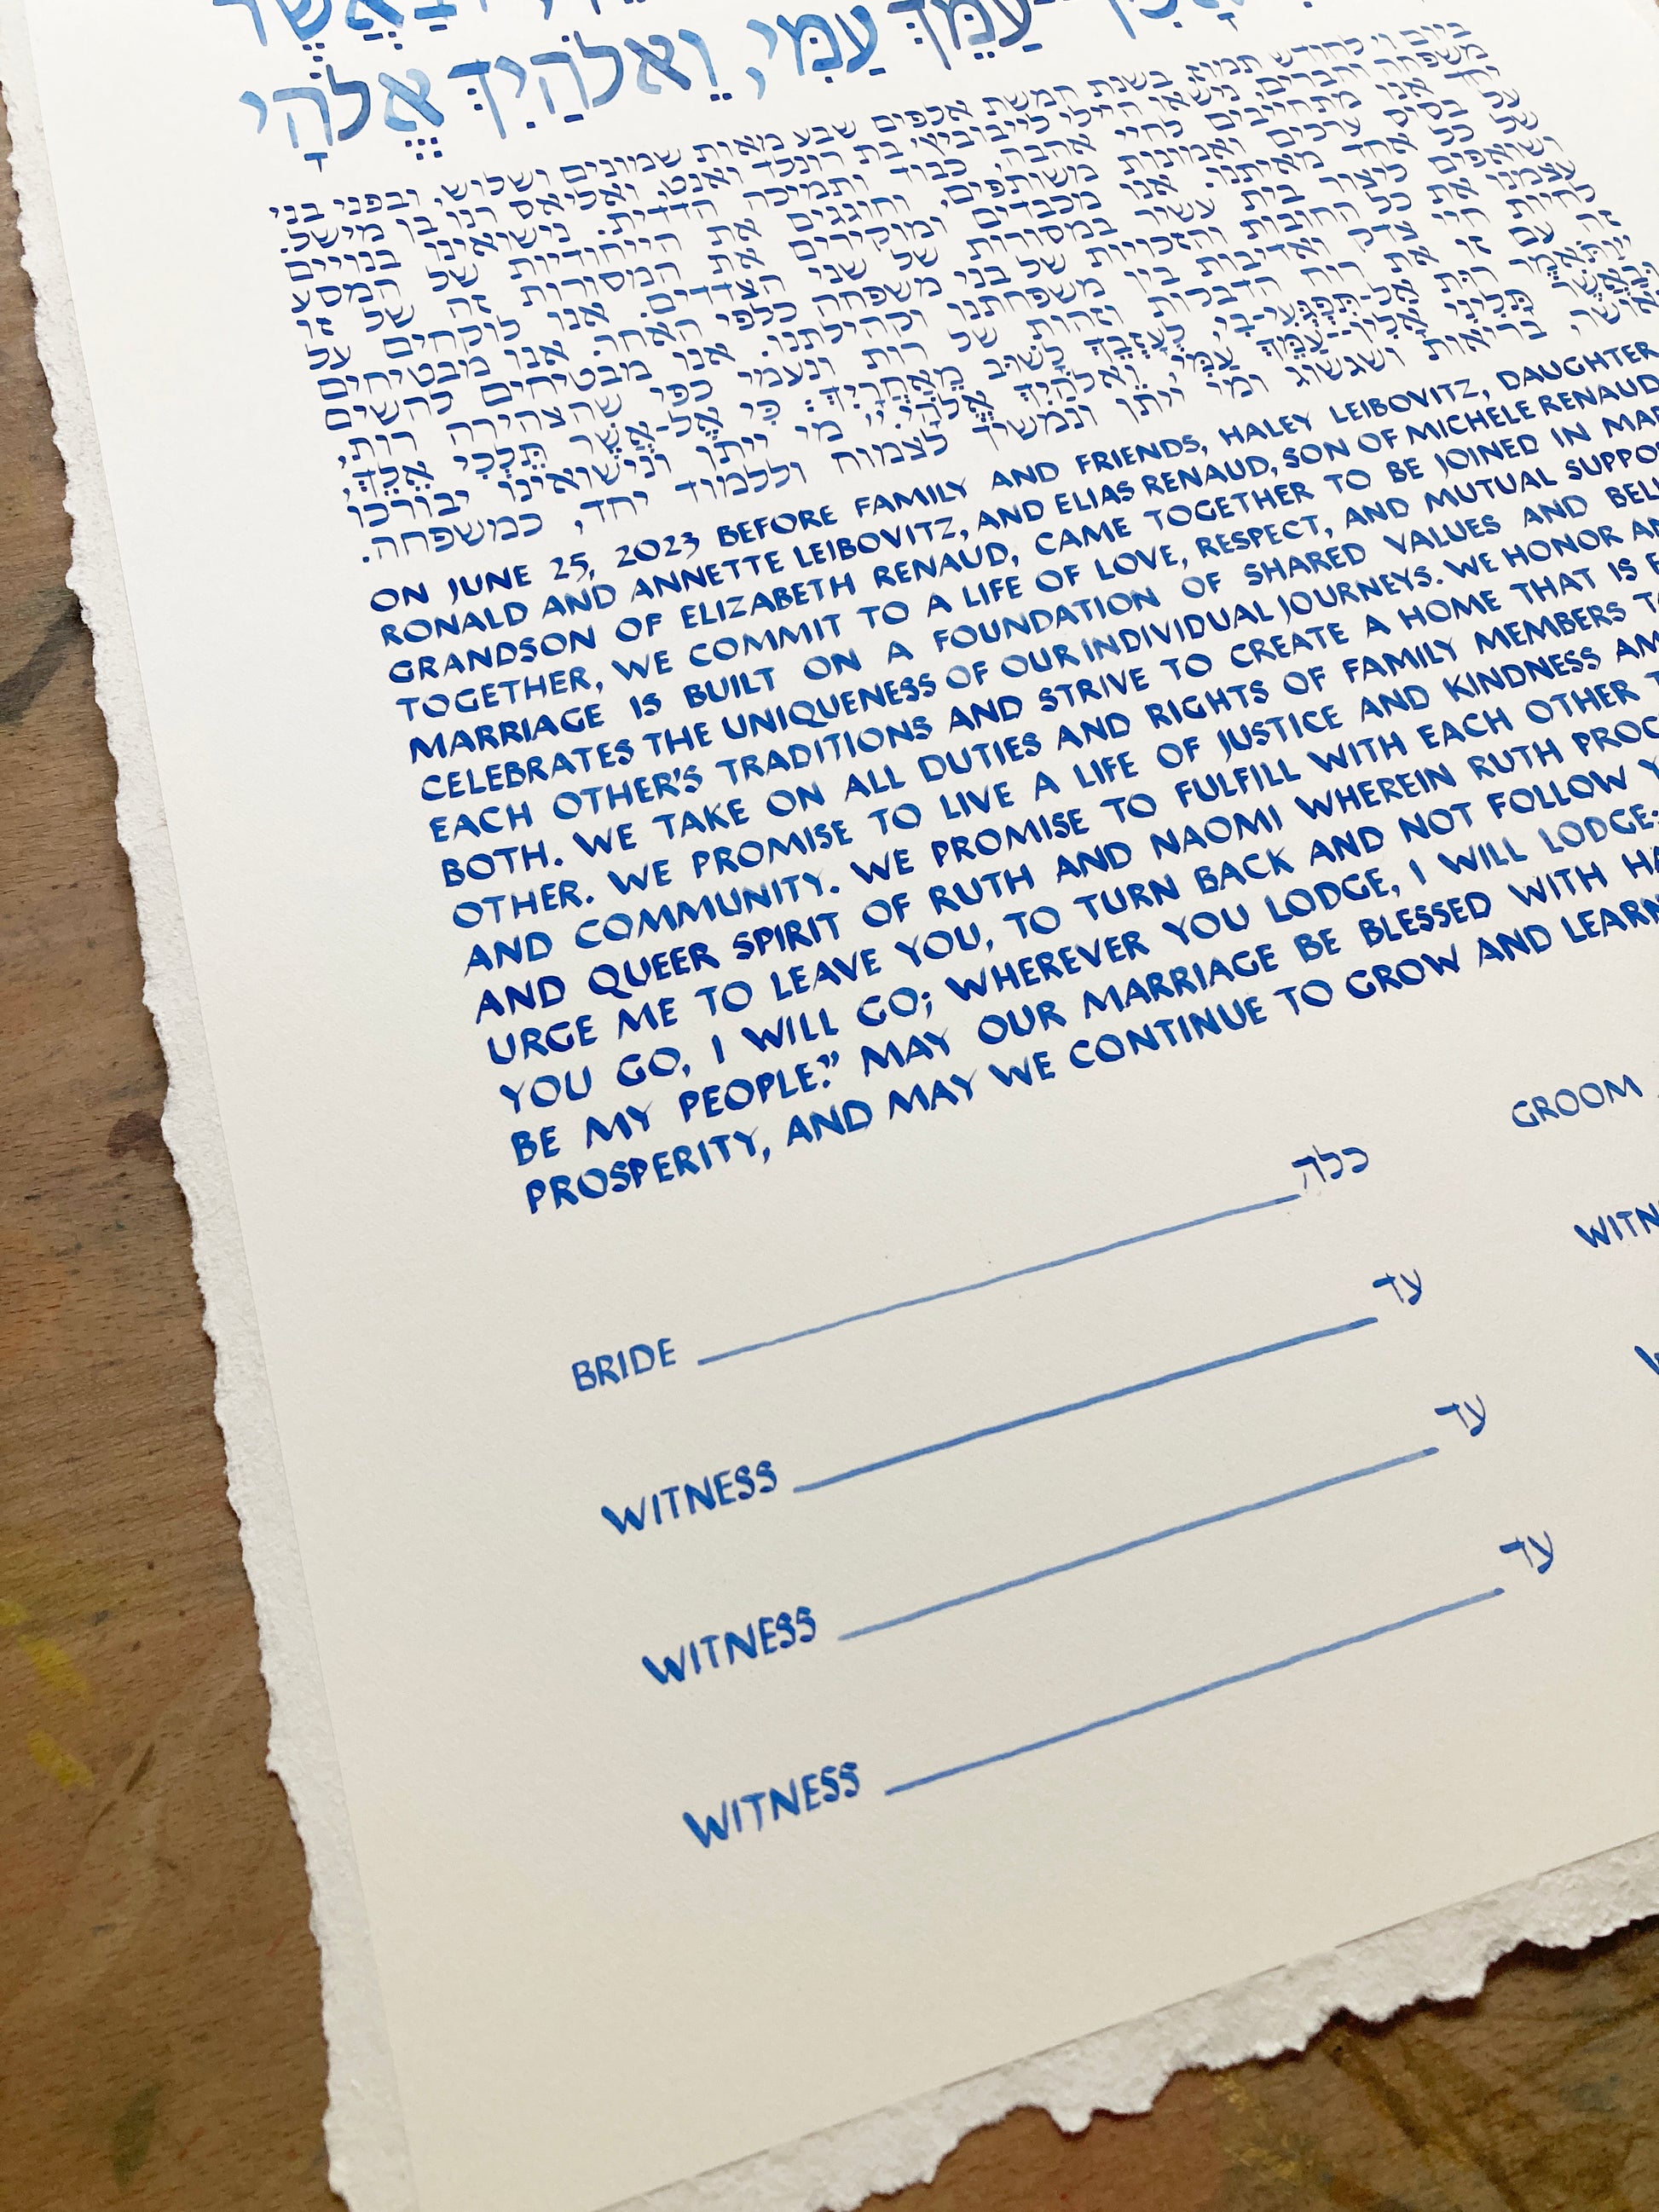 וּבַאֲשֶׁר
עַמֵּךְ עַמִּי, וֵאלֹהַיִךְ אֱלֹהָי
ביום ו' לחודש תמוז, בשנת חמשת אלפים שבע מאות שמונים ושלוש, ובפני בני
משפחה וחברים, נישאו היילי לייבוביץ' בת רונלד ואנט, ואליאס רנו בן מישל.
יחד אנו מתחייבים לחיי אהבה, כבוד ותמיכה הדדית. נישואינו בנויים
על בסיס ערכים ואמונות משותפים, וחוגגים את הייחודיות של המסע
של כל אחד מאיתנו. אנו מכבדים ומוקירים את המסורות זה של זו
ושואפים ליצור בית עשיר במסורות של שני הצדדים. אנו לוקחים על
עצמנו את כל החובות והזכויות של בני משפחה כלפי האחר. אנו מבטיחים
לחיות חיי צדק ואדיבות בין משפחתנו וקהילתנו. אנו מבטיחים להשים
זה עם זו את רוח הדבקות וזהות של רות ונעמי כפי שהצהירה רות,
"וַתֹּאמֶר רוּת אַל-תִּפְגְּעִי-בִי, לְעָזְבֵךְ לָשׁוּב מֵאַחֲרָיִךְ: כִּי אֶל-אֲשֶׁר תֵּלְכִי אֵלֵךְ,
וּבַאֲשֶׁר תָּלִינִי אָלִין--עַמֵּךְ עַמִּי, וֵאלֹהַיִךְ אֱלֹהָי." מי ייתן ונישואינו יבורכו
באושר, בריאות ושגשוג ומי ייתן ונמשיך לצמוח וללמוד יחד, כמשפחה.
ON JUNE 25, 2023 BEFORE FAMILY AND FRIENDS, HALEY LEIBOVITZ, DAUGHTER
RONALD AND ANNETTE LEIBOVITZ, AND ELIAS RENAUD, SON OF MICHELE RENAUD
GRANDSON OF ELIZABETH RENAUD, CAME TOGETHER TO BE JOINED IN
TOGETHER, WE COMMIT TO A LIFE OF LOVE, RESPECT, AND MUTUAL
MARRIAGE IS BUILT ON A FOUNDATION OF SHARED VALUES AND
CELEBRATES THE UNIQUENESS OF OUR INDIVIDUAL JOURNEYS. WE HONOR
EACH OTHER'S TRADITIONS AND STRIVE TO CREATE A HOME THAT IS
BOTH. WE TAKE ON ALL DUTIES AND RIGHTS OF FAMILY MEMBERS
OTHER. WE PROMISE TO LIVE A LIFE OF JUSTICE AND KINDNESS
AND COMMUNITY. WE PROMISE TO FULFILL WITH EACH OTHER
AND QUEER SPIRIT OF RUTH AND NAOMI WHEREIN RUTH
URGE ME TO LEAVE YOU, TO TURN BACK AND NOT FOLLOW
YOU GO, I WILL GO; WHEREVER YOU LODGE, I WILL LODGE;
BE MY PEOPLE." MAY OUR MARRIAGE BE BLESSED WITH
PROSPERITY, AND MAY WE CONTINUE TO GROW AND LEARN
BRIDE כלה
GROOM
WITNESS עד
WITNESS עד
WITNESS עד